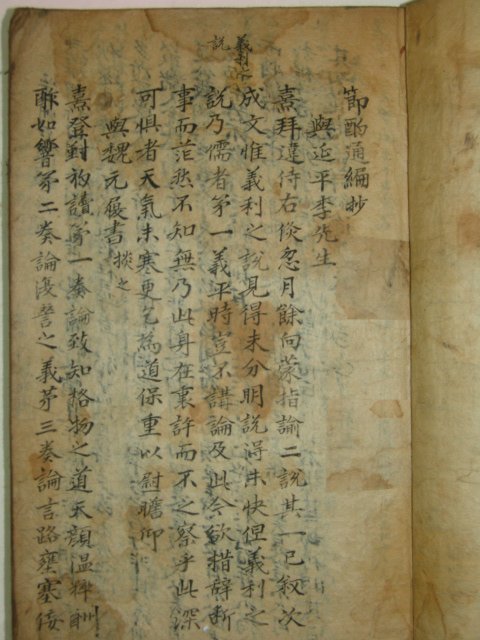 義利介
說
節酌通編抄
與延平李先生
熹拜違侍右倐忽月餘向蒙指諭二說其一已叙次
成文惟義利之說見得未分明說得未快但義利之
說乃儒者第一義平時豈不講論及此今欲措辭斷
事而茫然不知無乃此身在裏許而不之察乎此深
可惧者天氣未寒更乞為道保重以慰瞻仰
與魏元履書 掞之
熹登對初讀第一奏論致知格物之道天顏溫粹酬
酢如響第二奏論復讐之義第三奏論言路壅塞佞